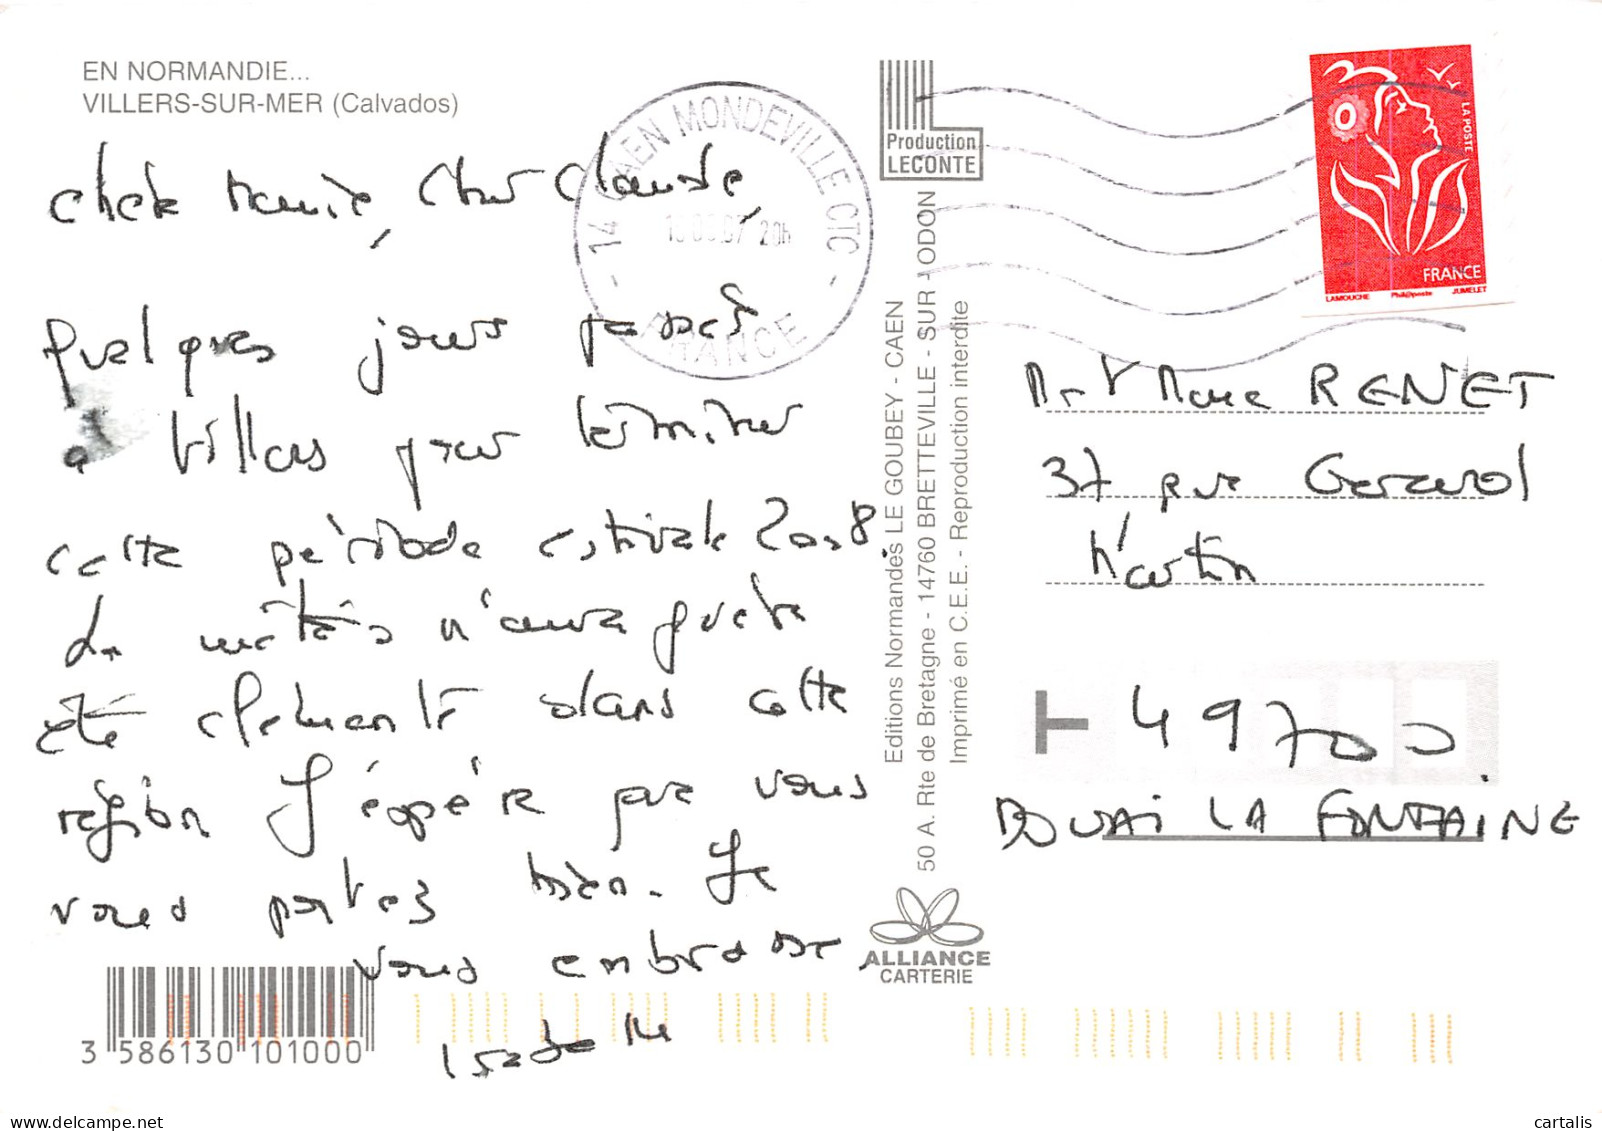 EN NORMANDIE...
VILLERS-SUR-MER (Calvados)
Chère Marie, Cher Claude,
Quelques jours passés
à Villers pour terminer
cette période estivale 2008.
La météo n'aura guère
été clémente dans cette
région J'espère que vous
vous portez bien. Je
vous embrasse
Isabelle
3 586130 101000
14 CAEN MONDEVILLE CTC
07 20h
FRANCE
Production
LECONTE
Editions Normandes LE GOUBEY - CAEN
50 A. Rte de Bretagne - 14760 BRETTEVILLE - SUR - ODON
Imprimé en C.E.E. - Reproduction interdite
ALLIANCE
CARTERIE
LA POSTE
FRANCE
LAMOUCHE Phil@poste JUMELET
Mr RENET
37 rue Gérard
Martin
T 49700
DOUAI LA FONTAINE
cartalis
www.delcampe.net